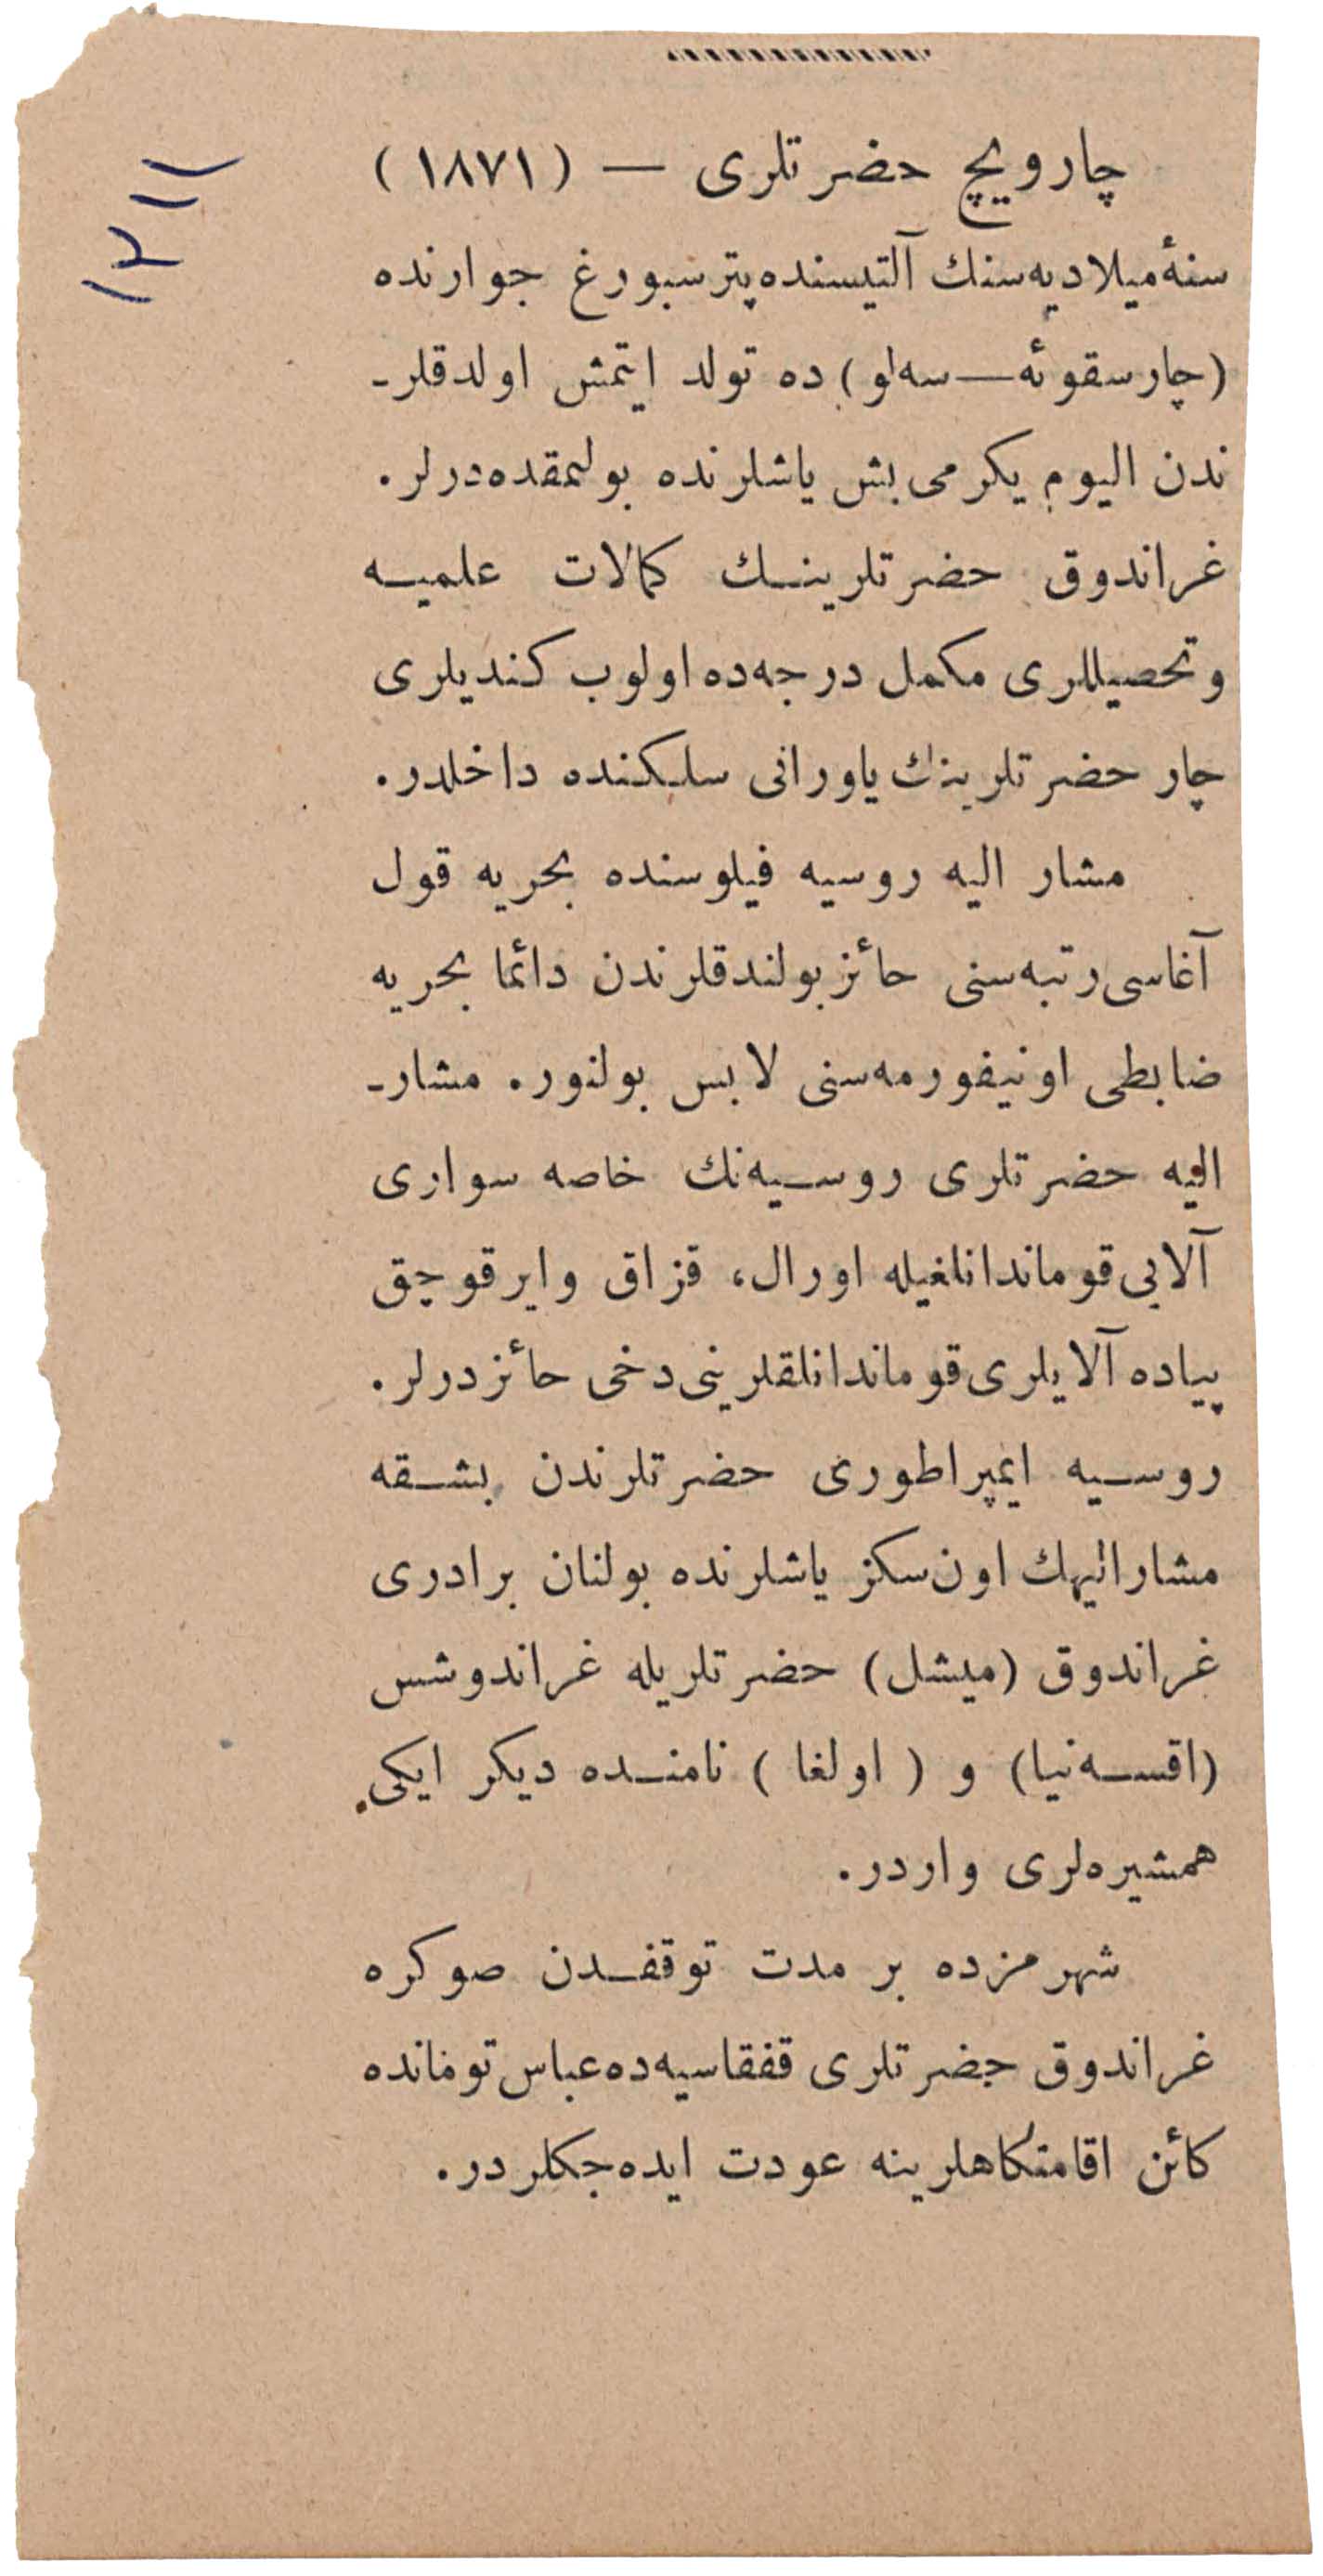 چارویچ حضرتلری — (١٨٧١)
سنهٔ میلادیه سنك آلتیسنده پترسبورغ جوارنده
(چارسقوئه—سه‌لو) ده تولد ایتمش اولدقلر-
ندن الیوم یکرمی بش یاشلرنده بولمقده‌درلر.
غراندوق حضرتلرینك کمالات علمیه
و تحصیللری مکمل درجه‌ده اولوب کندیلری
چار حضرتلرینك یاورانی سلکنده داخلدر.
مشار الیه روسیه فیلوسنده بحریه قول
آغاسی رتبه‌سنی حائز بولندقلرندن دائما بحریه
ضابطی اونیفورمه‌سنی لابس بولنور. مشار-
الیه حضرتلری روسیه‌نك خاصه سواری
آلایی قوماندانلغیله اورال، قزاق و ایرقوچق
پیاده آلایلری قوماندانلقلرینی دخی حائزدرلر.
روسیه ایمپراطوری حضرتلرندن بشقه
مشارالیهك اون سکز یاشلرنده بولنان برادری
غراندوق (میشل) حضرتلریله غراندوشس
(اقسه‌نیا) و (اولغا) نامنده دیکر ایکی
همشیره‌لری واردر.
شهرمزده بر مدت توقفدن صوکره
غراندوق حضرتلری قفقاسیه‌ده عباس تومانده
کائن اقامتکاهلرینه عودت ایده‌جکلردر.
١٢١١